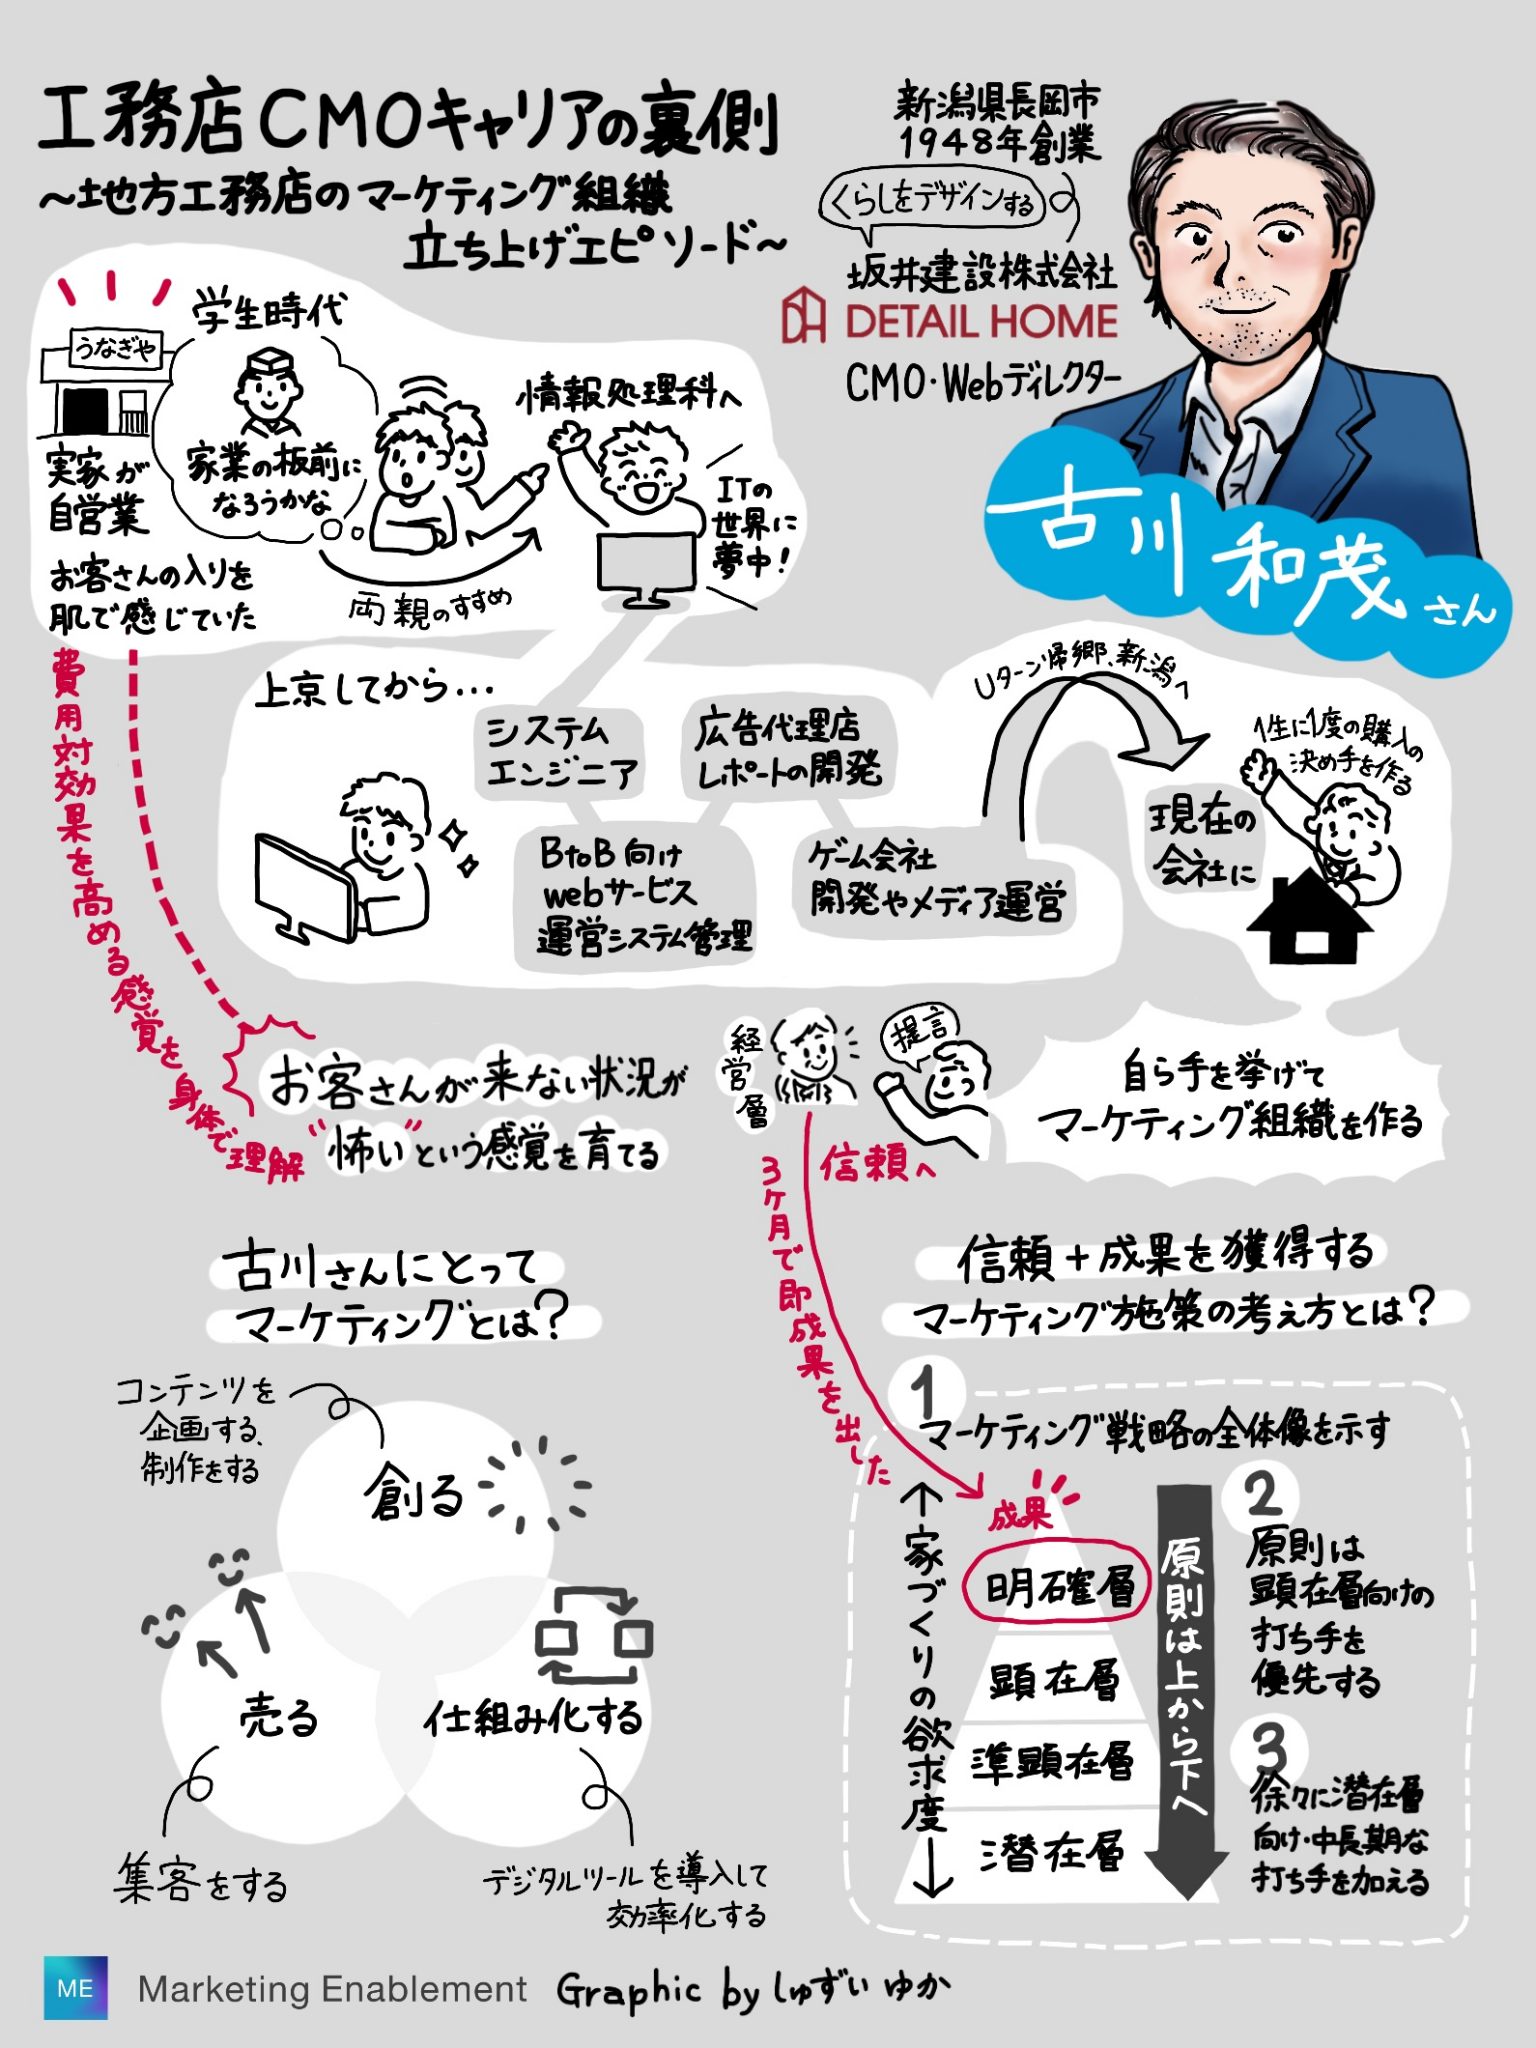 工務店CMOキャリアの裏側
～地方工務店のマーケティング組織
立ち上げエピソード～
新潟県長岡市
1948年創業
くらしをデザインする の
坂井建設株式会社
DH DETAIL HOME
CMO・Webディレクター
古川 和茂さん
うなぎや
実家が
自営業
お客さんの入りを
肌で感じていた
学生時代
家業の板前に
なろうかな
両親のすすめ
情報処理科へ
ITの
世界に
夢中!
上京してから…
システム
エンジニア
BtoB向け
webサービス
運営システム管理
広告代理店
レポートの開発
ゲーム会社
開発やメディア運営
Uターン帰郷、新潟へ
現在の
会社に
1生に1度の購入の
決め手を作る
費用対効果を高める感覚を身体で理解
お客さんが来ない状況が
"怖い"という感覚を育てる
経営層
提言
自ら手を挙げて
マーケティング組織を作る
信頼へ
3ヶ月で即成果を出した
古川さんにとって
マーケティングとは?
コンテンツを
企画する、
制作をする
創る
売る
仕組み化する
集客をする
デジタルツールを導入して
効率化する
信頼+成果を獲得する
マーケティング施策の考え方とは?
1
マーケティング戦略の全体像を示す
成果
家づくりの欲求度
明確層
顕在層
準顕在層
潜在層
原則は上から下へ
2
原則は
顕在層向けの
打ち手を
優先する
3
徐々に潜在層
向け・中長期な
打ち手を加える
ME Marketing Enablement Graphic by しゅずい ゆか